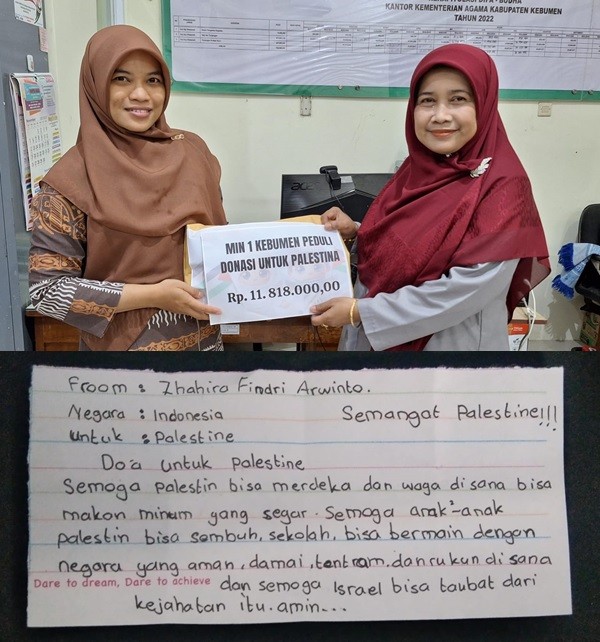 KANTOR KEMENTERIAN AGAMA KABUPATEN KEBUMEN
TAHUN 2022
acer
MIN 1 KEBUMEN PEDULI
DONASI UNTUK PALESTINA
Rp. 11. 818.000,00
Froom : Zhahira Findri Arwinto.
Negara : Indonesia Semangat Palestine!!!
Untuk : Palestine
Do'a untuk Palestine
Semoga Palestin bisa merdeka dan waga di sana bisa
makan minum yang segar. Semoga anak²-anak
palestin bisa sembuh, sekolah, bisa bermain dengan
negara yang aman, damai, tentram. dan rukun di sana
Dare to dream, Dare to achieve dan semoga Israel bisa taubat dari
kejahatan itu. amin...